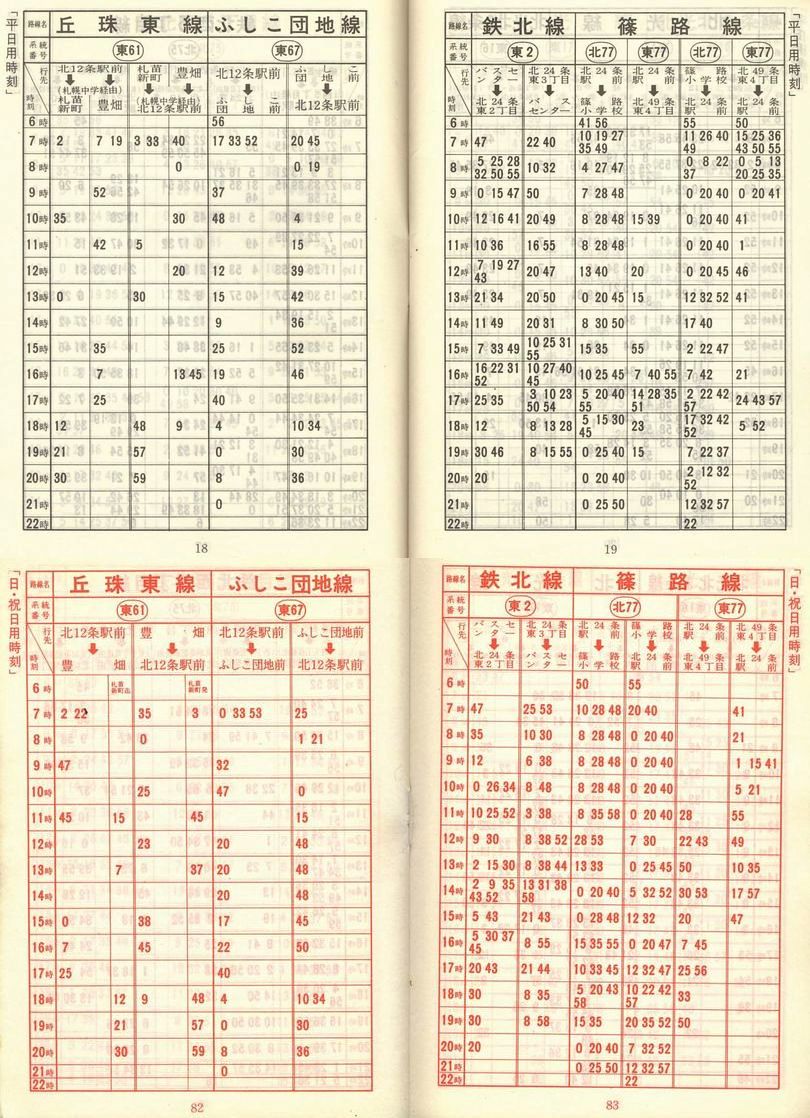 「平日用時刻」
路線名 丘珠東線 ふしこ団地線
系統番号 東61 東67
行先 時刻 北12条駅前 ↓ (札幌中学経由) 札苗新町 豊畑 札苗新町 豊畑 ↓ (札幌中学経由) 北12条駅前 北12条駅前 ↓ ふしこ団地前 ふしこ団地前 ↓ 北12条駅前
6時 56
7時 2 7 19 3 33 40 17 33 52 20 45
8時 0 0 19
9時 52 37
10時 35 30 48 4
11時 42 5 15
12時 20 12 39
13時 0 30 15 42
14時 9 36
15時 35 25 52
16時 7 13 45 19 46
17時 25 40
18時 12 48 9 4 10 34
19時 21 57 0 30
20時 30 59 8 36
21時 0
22時
18
路線名 鉄北線 篠路線
系統番号 東2 北77 東77 北77 東77
行先 時刻 バスセンター ↓ 北24条東2丁目 北24条東3丁目 ↓ バスセンター 北24条駅前 ↓ 篠路小学校 北24条駅前 ↓ 北49条東4丁目 篠路小学校 ↓ 北24条駅前 北49条東4丁目 ↓ 北24条駅前
6時 41 56 55 50
7時 47 22 40 10 19 27 35 49 11 26 40 49 15 25 36 43 50 55
8時 5 25 28 32 50 55 10 32 4 27 47 0 8 22 37 0 5 13 20 25 35
9時 0 15 47 50 7 28 48 0 20 40 0 20 41
10時 12 16 41 20 49 8 28 48 15 39 0 20 40 41
11時 10 36 16 55 8 28 48 0 20 40 1
12時 7 19 27 43 20 47 13 40 20 0 20 45 46
13時 21 34 20 50 0 20 45 15 12 32 52 41
14時 11 49 20 31 8 30 50 17 40
15時 7 33 49 10 25 31 55 15 35 55 2 22 47
16時 16 22 31 52 10 27 40 45 10 25 45 7 40 55 7 42 21
17時 25 35 3 10 23 50 54 5 20 40 55 14 28 35 51 2 22 42 57 24 43 57
18時 12 8 13 28 5 15 30 45 23 17 32 42 52 5 52
19時 30 46 8 15 55 0 25 40 15 7 22 37
20時 20 0 20 40 2 12 32 52
21時 0 25 50 12 32 57
22時 22
19
「日・祝日用時刻」
路線名 丘珠東線 ふしこ団地線
系統番号 東61 東67
行先 時刻 北12条駅前 ↓ 豊畑 豊畑 ↓ 北12条駅前 北12条駅前 ↓ ふしこ団地前 ふしこ団地前 ↓ 北12条駅前
6時 札苗新町発
7時 2 22 35 3 0 33 53 25
8時 0 1 21
9時 47 32
10時 25 47 0
11時 45 15 45 15
12時 23 20 48
13時 7 37 20 48
14時 20 48
15時 0 38 17 45
16時 7 45 22 50
17時 25 40
18時 12 9 48 4 10 34
19時 21 57 0 30
20時 30 59 8 36
21時 0
22時
82
「日・祝日用時刻」
路線名 鉄北線 篠路線
系統番号 東2 北77 東77
行先 時刻 バスセンター ↓ 北24条東2丁目 北24条東3丁目 ↓ バスセンター 北24条駅前 ↓ 篠路小学校 篠路小学校 ↓ 北24条駅前 北24条駅前 ↓ 北49条東4丁目 北49条東4丁目 ↓ 北24条駅前
6時 50 55
7時 47 25 53 10 28 48 20 40 41
8時 35 10 30 8 28 48 0 20 40 21
9時 12 6 38 8 28 48 0 20 40 1 15 41
10時 0 26 34 8 48 8 28 48 0 20 40 5 21
11時 10 25 52 3 38 8 35 58 0 20 40 28 55
12時 9 30 8 38 52 28 53 7 30 22 43 49
13時 2 15 30 8 38 44 13 33 0 25 45 50 10 35
14時 2 9 35 43 52 13 31 38 58 0 20 40 5 32 52 30 53 17 57
15時 5 43 21 43 0 28 48 12 32 20 47
16時 5 30 37 45 8 55 15 35 55 0 20 47 7 45
17時 20 43 21 44 10 33 45 12 32 47 25 56
18時 30 8 35 5 20 43 58 10 22 42 57 33
19時 30 8 58 15 35 20 35 52 50
20時 20 0 20 40 7 32 52
21時 0 25 50 12 32 57
22時 22
83